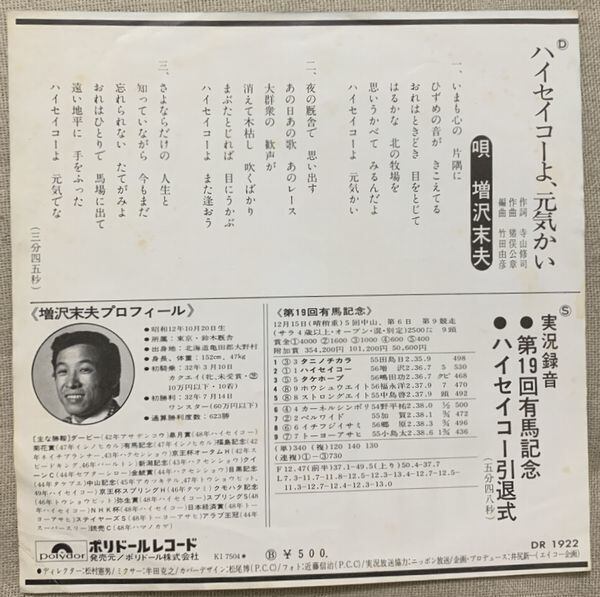 Ⓓ
ハイセイコーよ、元気かい
作詞 寺山修司
作曲 猪俣公章
編曲 竹田由彦
唄 増沢末夫
一、いまも心の 片隅に
ひずめの音が きこえてる
おれはときどき 目をとじて
はるかな 北の牧場を
思いうかべて みるんだよ
ハイセイコーよ 元気かい
二、夜の厩舎で 思い出す
あの日あの歌 あのレース
大群衆の 歓声が
消えて木枯し 吹くばかり
まぶたとじれば 目にうかぶ
ハイセイコーよ また逢おう
三、さよならだけの 人生と
知っていながら 今もまだ
忘れられない たてがみよ
おれはひとりで 馬場に出て
遠い地平に 手をふった
ハイセイコーよ 元気でな
(三分四五秒)
Ⓢ
実況録音
●第19回有馬記念
●ハイセイコー引退式
(五分四八秒)
《第19回有馬記念》
12月15日(晴稍重)5回中山、第6日 第9競走
(サラ4歳以上・オープン・混・別定)2500㍍ 9頭
賞金①4000 ②1600 ③1000 ④600 ⑤400
附加賞 354,200円 101,200円 50,600円
③3タニノチカラ 55田島日2.35.9 498
①1ハイセイコー 56増沢2.36.7 5 530
⑤5タケホープ 56嶋田功2.36.7 クビ 468
⑧8ホウシュウエイト 56福永洋2.36.9
⑧8ストロングエイト 55中島啓2.36.9
④4カーネルシンボリ 54野平祐2.38.0
②2ベルワイド 55加賀2.38.1
⑥6イチフジイサミ 56郷原2.38.3
⑦7トーヨーアサヒ 55小島太2.38.6 436
(単)340(複)120 140 130
(連複)①-③730
F12.47(前半)37.1-49.5(上り)50.4-37.7
《増沢末夫プロフィール》
●昭和12年10月20日生
●所属:東京・鈴木厩舎
●出身地:北海道亀田郡大野村
●身長、体重:152cm、47kg
●初騎乗:32年3月10日
カクエイ(牝、未受賞・
10万円以下・10着)
●初勝利:32年7月14日
ワンスター(60万円以下)
●通算勝利度数:623勝
Polydor
ポリドールレコード
発売元/ポリドール株式会社
K1 7504★
Ⓑ ¥500.
DR 1922
●ディレクター:松村憲男/ミクサー:半田克之/カバーデザイン:松尾博(P.C.C)/フォト:近藤信治(P.C.C)/実況放送協力:ニッポン放送/企画・プロデュース:井尻新一(エイコー企画)